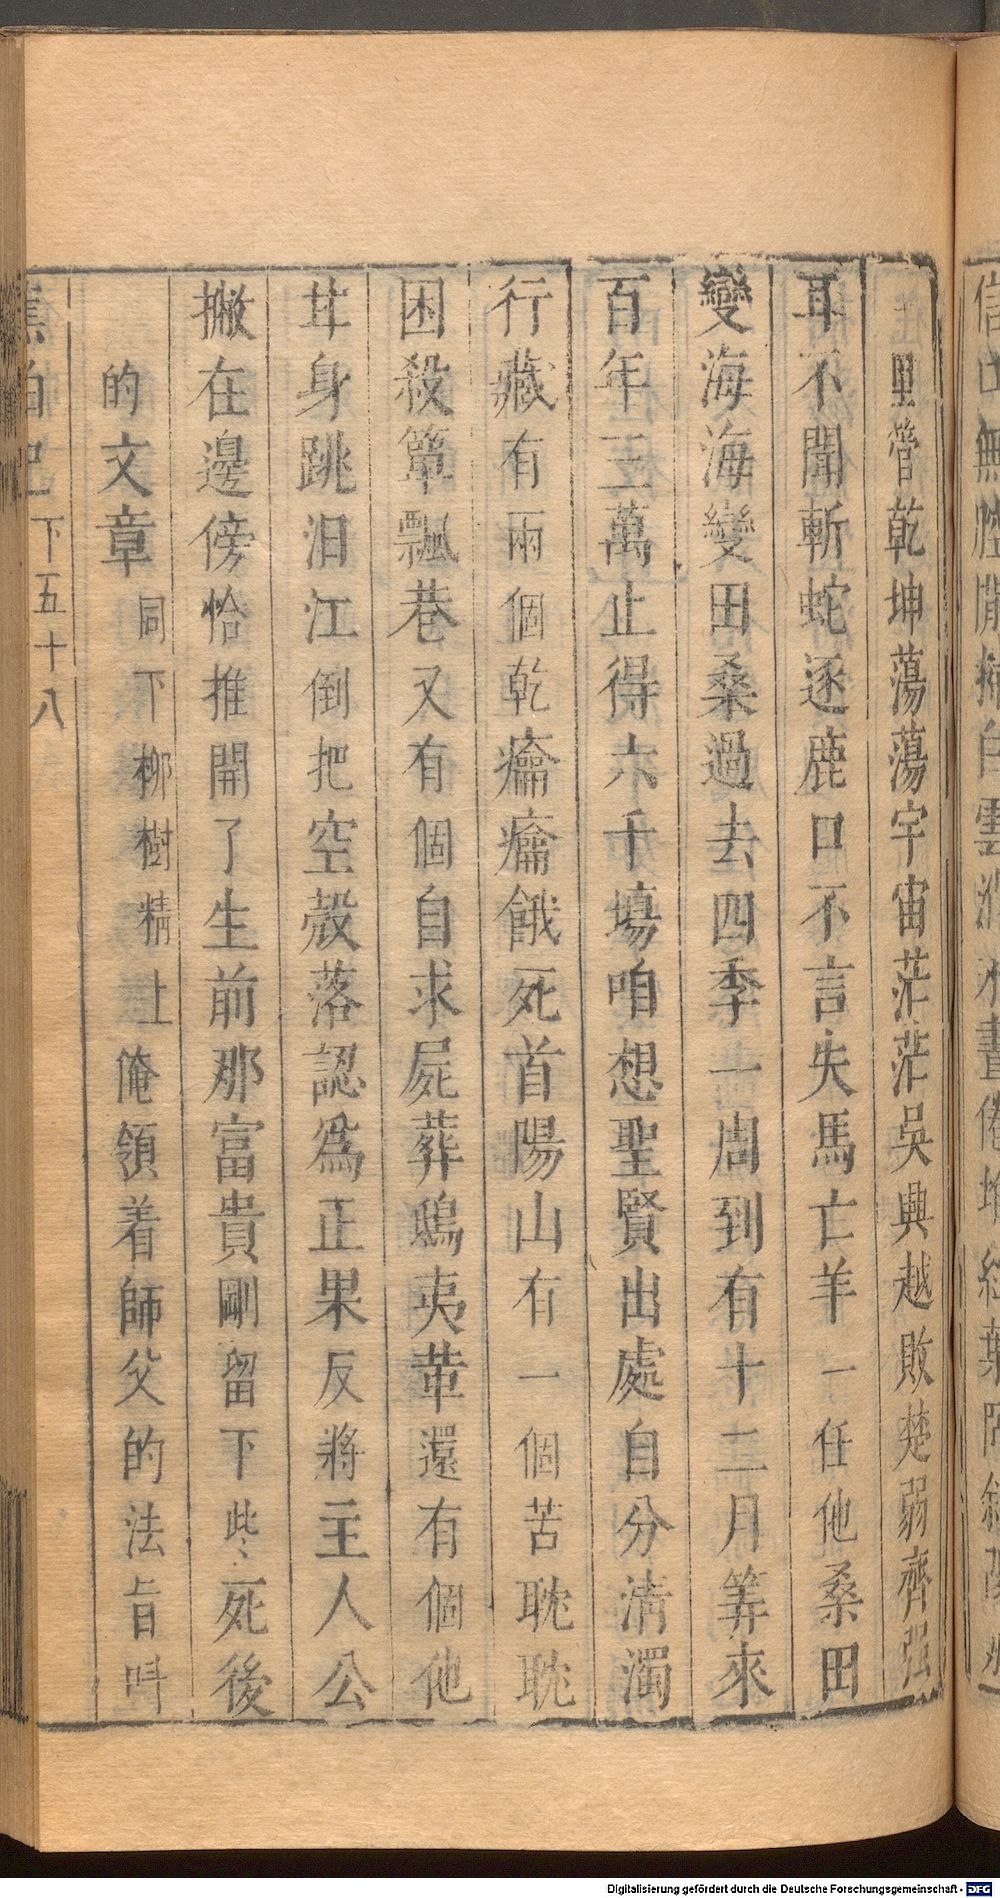 里管乾坤蕩蕩宇宙茫茫吳興越敗楚弱齊强
耳不聞斬蛇逐鹿口不言失馬亡羊一任他桑田
變海海變田桑過去四季一周到有十二月筭來
百年三萬止得六千塲咱想聖賢出處自分清濁
行藏有兩個乾癟癟餓死首陽山有一個苦耽耽
困殺簞瓢巷又有個自求屍葬鴟夷革還有個他
甘身跳汨江倒把空殼落認爲正果反將主人公
撇在邊傍恰推開了生前那富貴剛留下些〻死後
的文章同下柳樹精上俺領着師父的法旨叫
下五十八
Digitalisierung gefördert durch die Deutsche Forschungsgemeinschaft - DFG